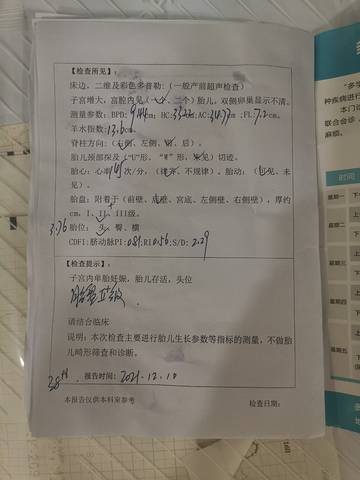 【检查所见】:
床边,二维及彩色多普勒:(一般产前超声检查)
子宫增大,宫腔内见(一个、二个)胎儿,双侧卵巢显示不清。
测量参数:BPD: cm; HC: cm;AC: cm;FL:7.2cm。
羊水指数:13.6cm。
脊柱方向:(右侧、左侧、前、后)。
胎儿颈部探及(“U”形、“W”形、未见)切迹。
胎心:心率 次/分,(律齐、不规律)。胎动:(可见、未
见)。
胎盘:附着于(前壁、后壁、宫底、左侧壁、右侧壁),厚约
cm,I、II、III级。
3.76 胎位:头、臀、横
CDFI:脐动脉PI:0.81;RI0.56;S/D:2.29
【检查提示】:
子宫内单胎妊娠,胎儿存活,头位
胎盘II+级
请结合临床
说明:本次检查主要进行胎儿生长参数等指标的测量,不做胎
儿畸形筛查和诊断。
38+ 报告时间:2021.12.10
本报告仅供本科室参考 检查日期:
“多学
种疾病进行
本门诊
联合会诊,
麻烦。
时间
星期一
星期二
星期三
星期四
星期五